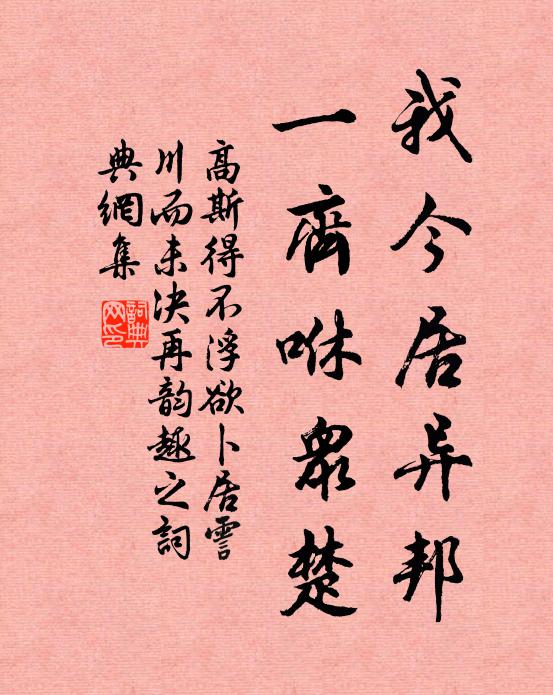 我今居异邦
一齊咻眾楚
高斯得不浮欲卜居霅
川而未決再韵趣之詞
典網集
詞典
网印